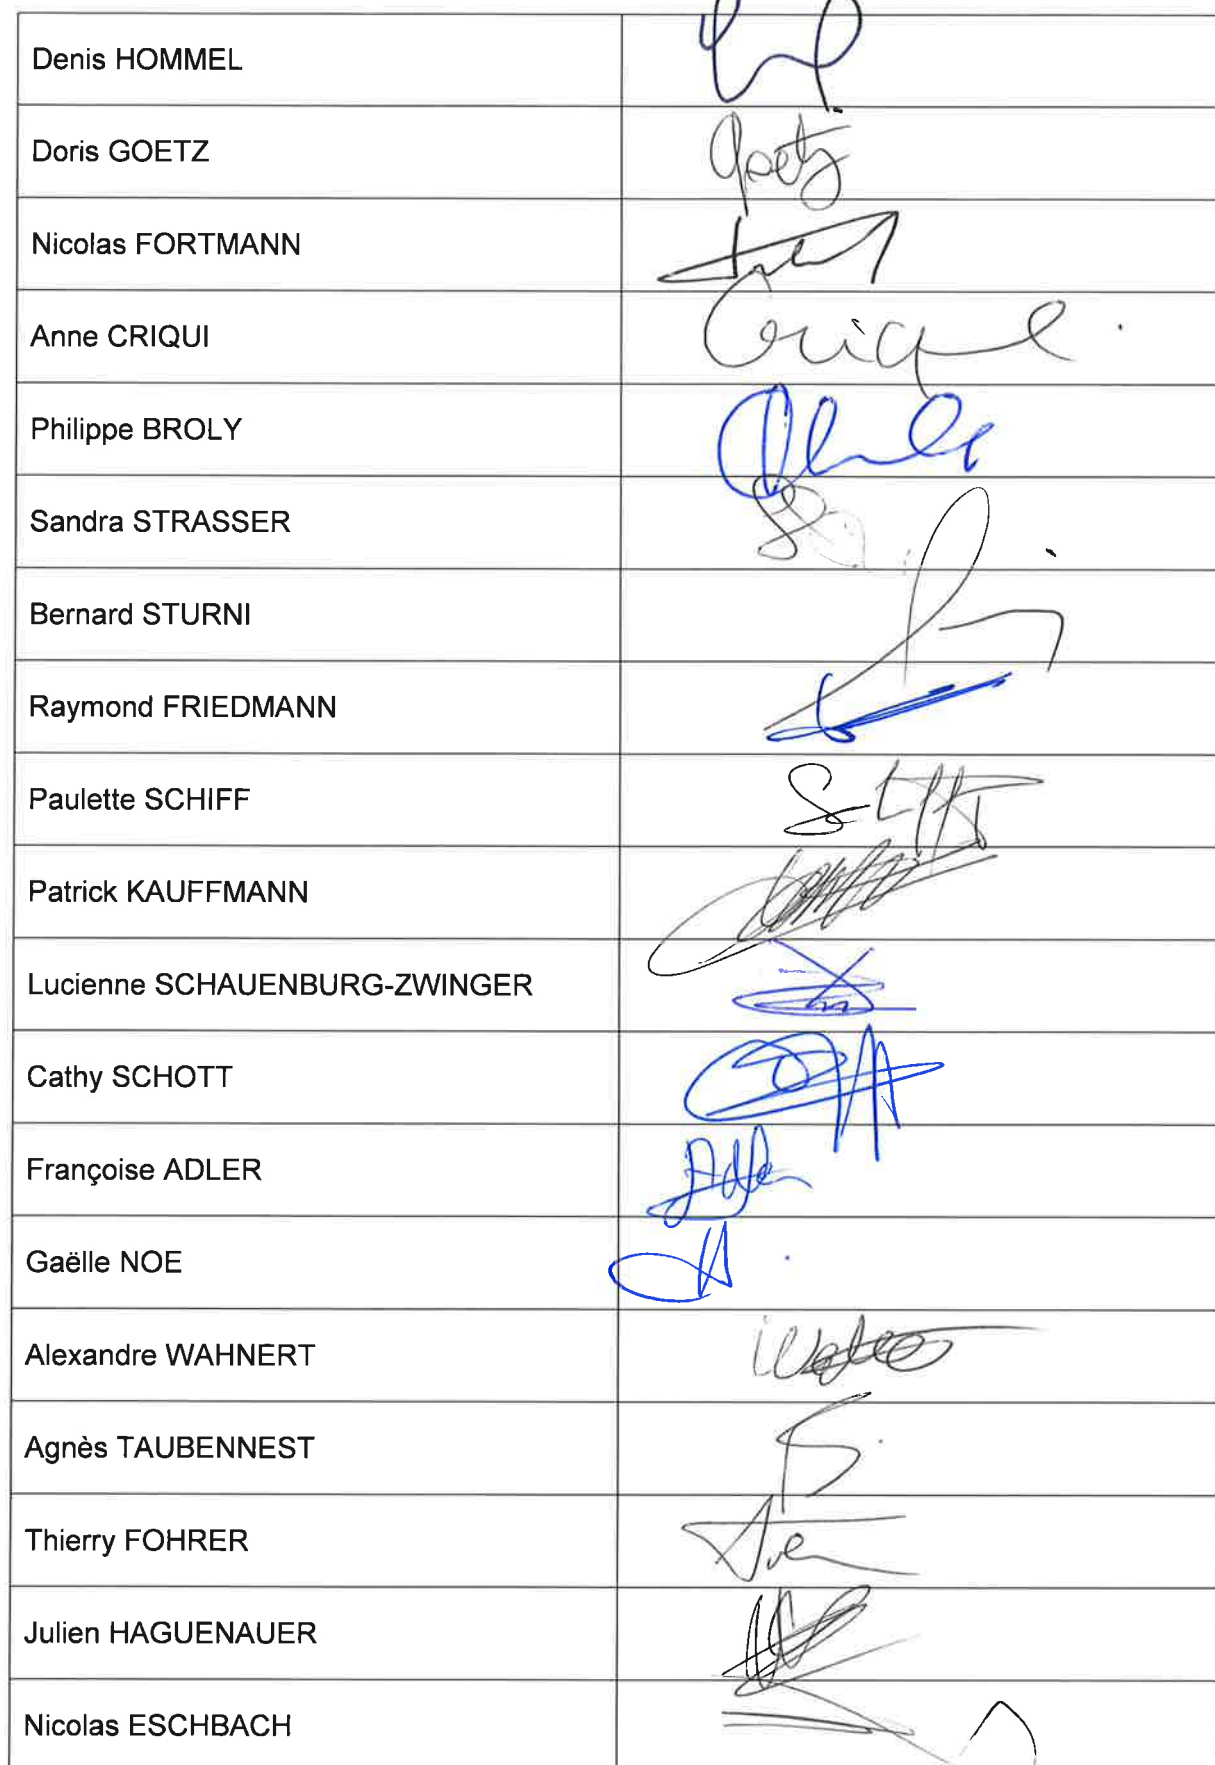 Denis HOMMEL
Doris GOETZ
Goetz
Nicolas FORTMANN
Anne CRIQUI
Criqui
Philippe BROLY
Sandra STRASSER
Bernard STURNI
Raymond FRIEDMANN
Paulette SCHIFF
Patrick KAUFFMANN
Lucienne SCHAUENBURG-ZWINGER
Cathy SCHOTT
Françoise ADLER
Adler
Gaëlle NOE
Alexandre WAHNERT
Agnès TAUBENNEST
Thierry FOHRER
Julien HAGUENAUER
Nicolas ESCHBACH